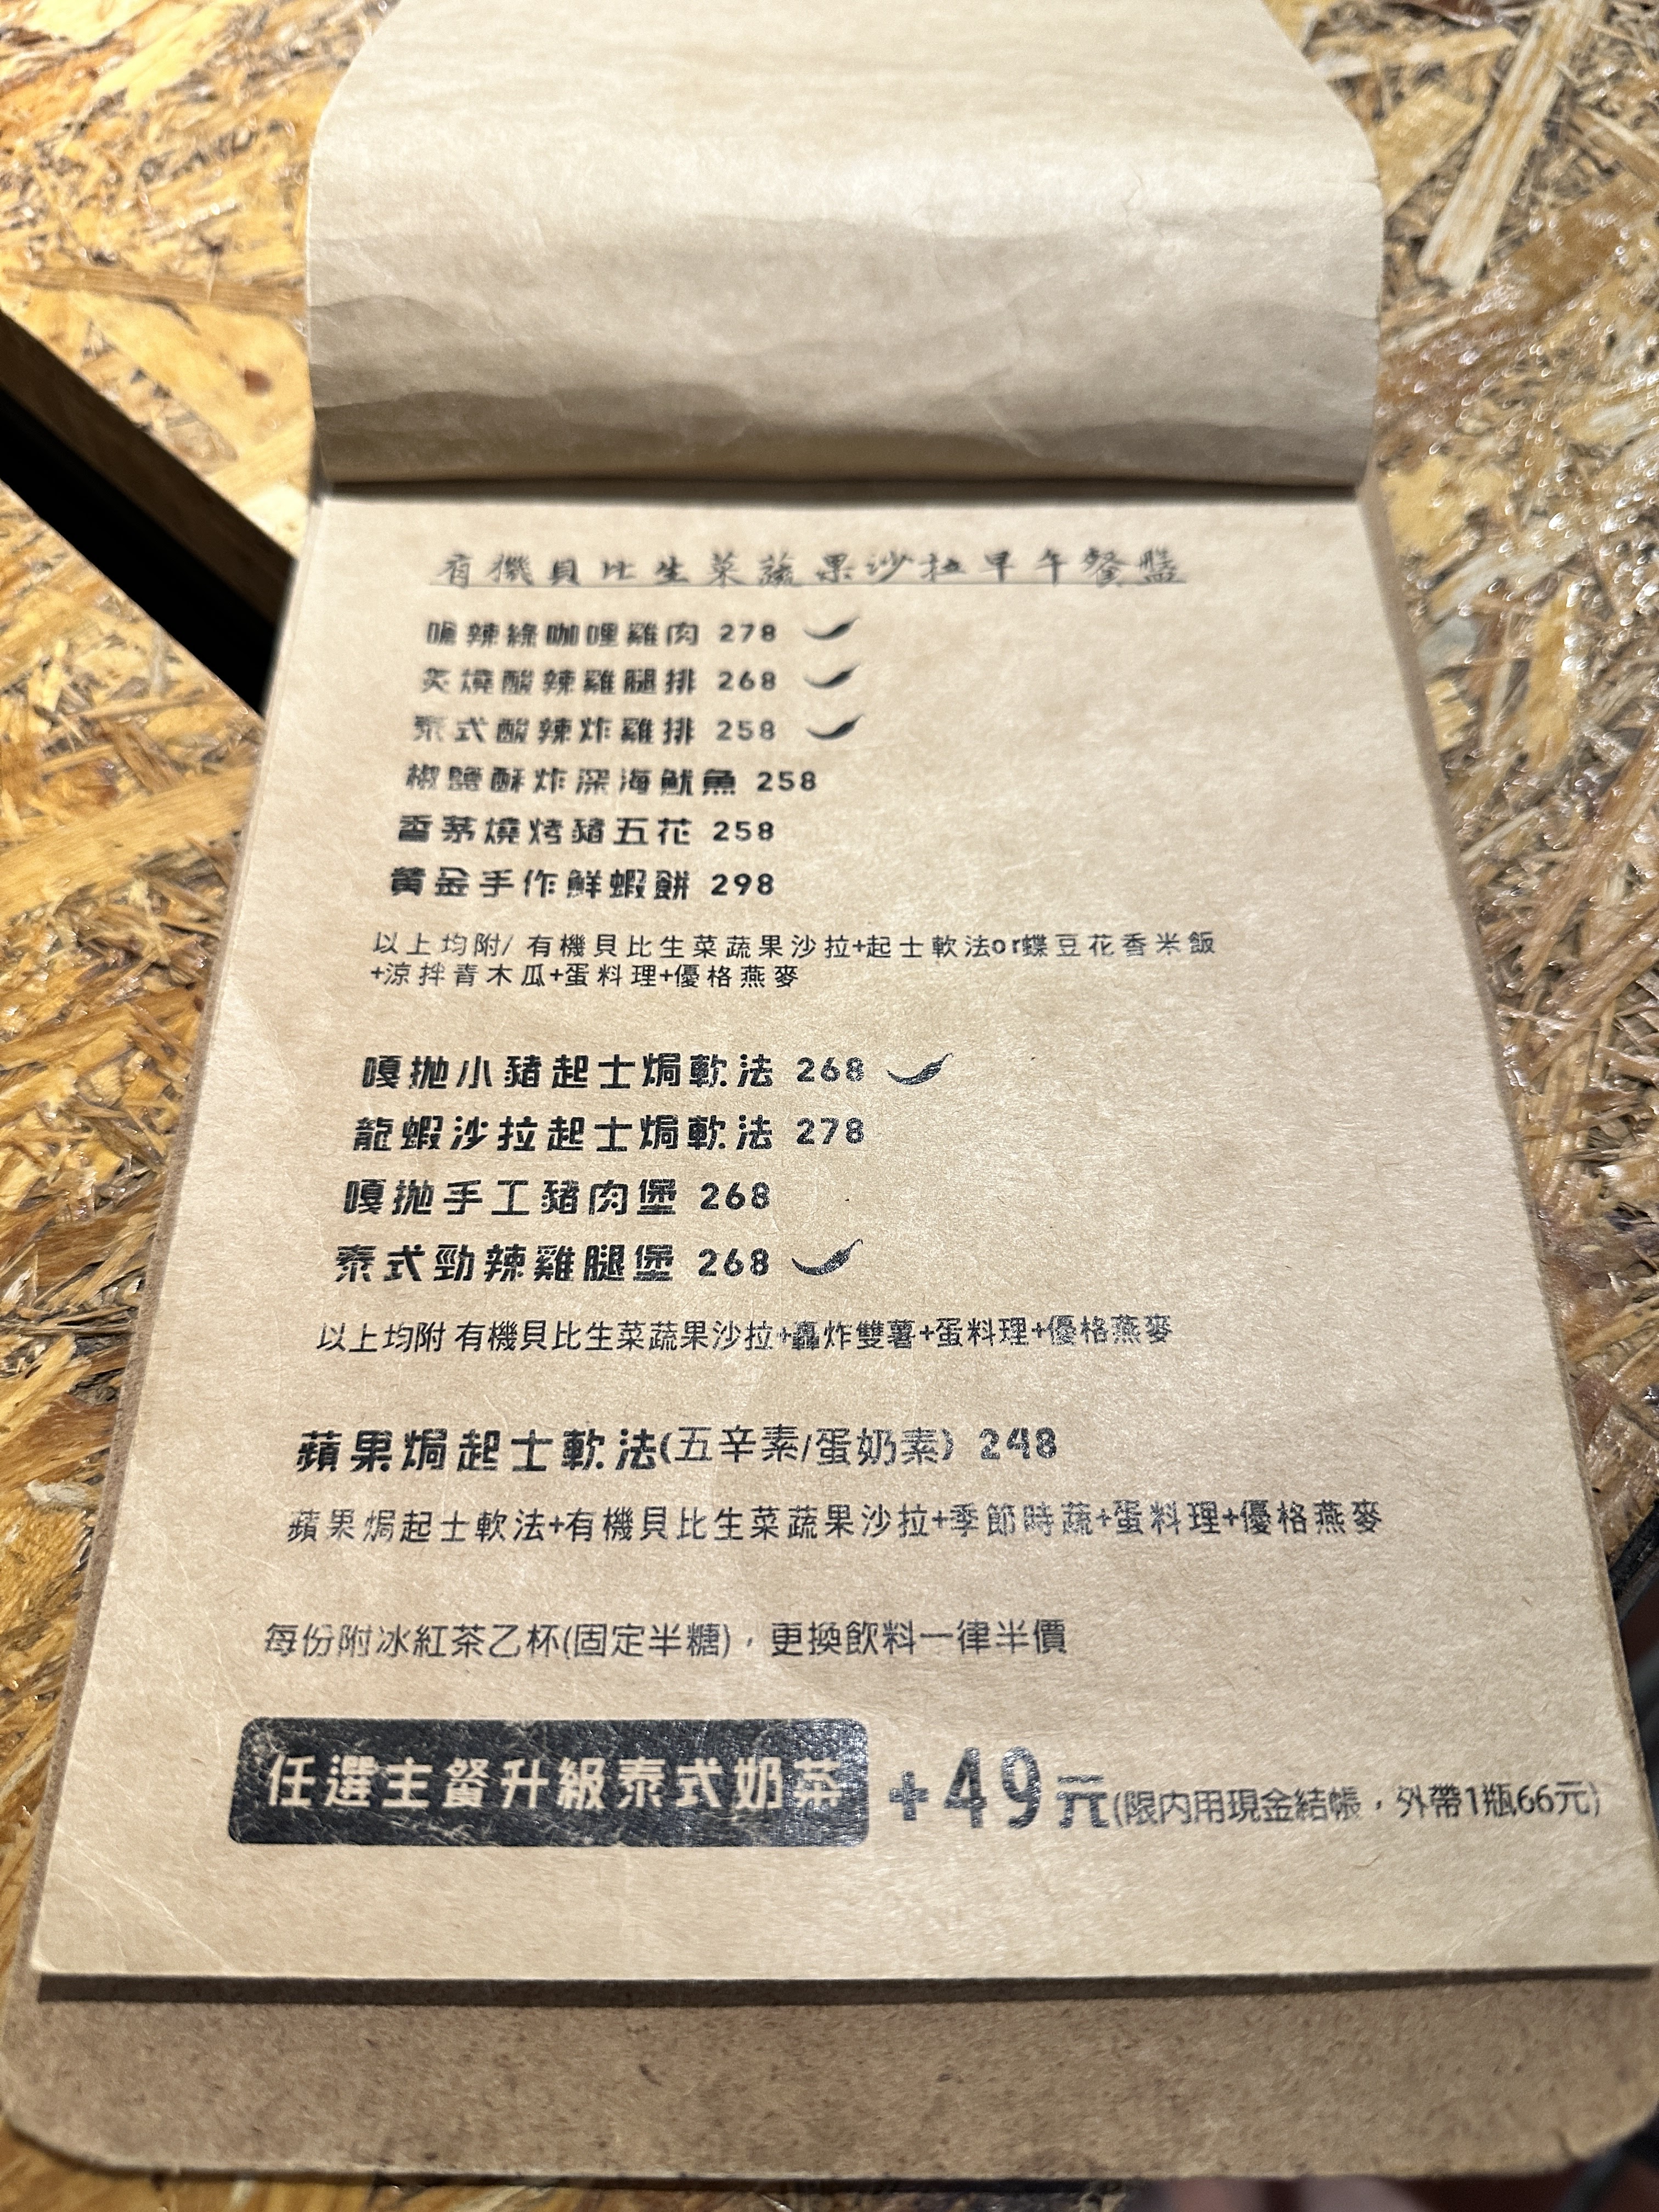 有機貝比生菜蔬果沙拉早午餐盤
嗆辣綠咖哩雞肉 278
炙燒酸辣雞腿排 268
泰式酸辣炸雞排 258
椒鹽酥炸深海魷魚 258
香茅燒烤豬五花 258
黃金手作鮮蝦餅 298
以上均附/ 有機貝比生菜蔬果沙拉+起士軟法or蝶豆花香米飯
+涼拌青木瓜+蛋料理+優格燕麥
嘎拋小豬起士焗軟法 268
龍蝦沙拉起士焗軟法 278
嘎拋手工豬肉堡 268
泰式勁辣雞腿堡 268
以上均附 有機貝比生菜蔬果沙拉+轟炸雙薯+蛋料理+優格燕麥
蘋果焗起士軟法(五辛素/蛋奶素) 248
蘋果焗起士軟法+有機貝比生菜蔬果沙拉+季節時蔬+蛋料理+優格燕麥
每份附冰紅茶乙杯(固定半糖)，更換飲料一律半價
任選主餐升級泰式奶茶 +49元(限內用現金結帳，外帶1瓶66元)